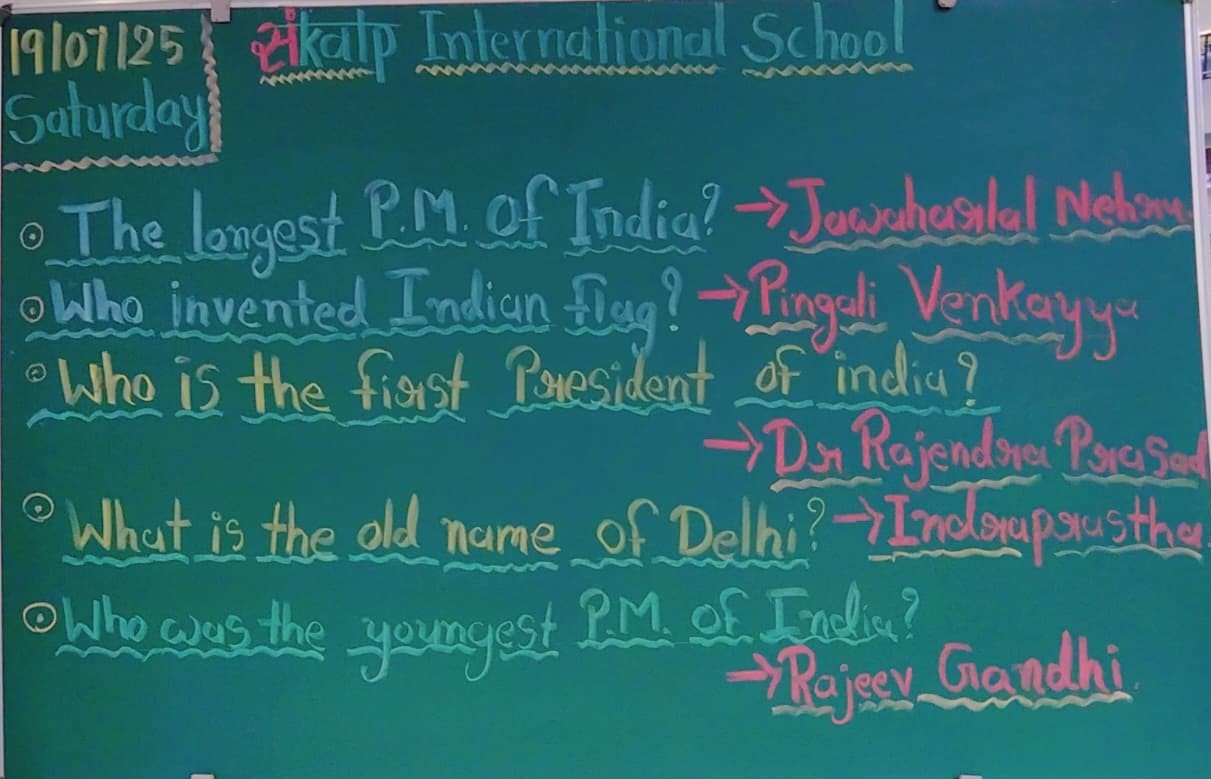 19/07/25 संकल्प International School
Saturday
The longest P.M. of India? → Jawaharlal Nehru.
Who invented Indian flag? → Pingali Venkayya
Who is the first President of india?
→ Dr Rajendra Prasad
What is the old name of Delhi? → Indraprastha
Who was the youngest P.M. of India?
→ Rajeev Gandhi.